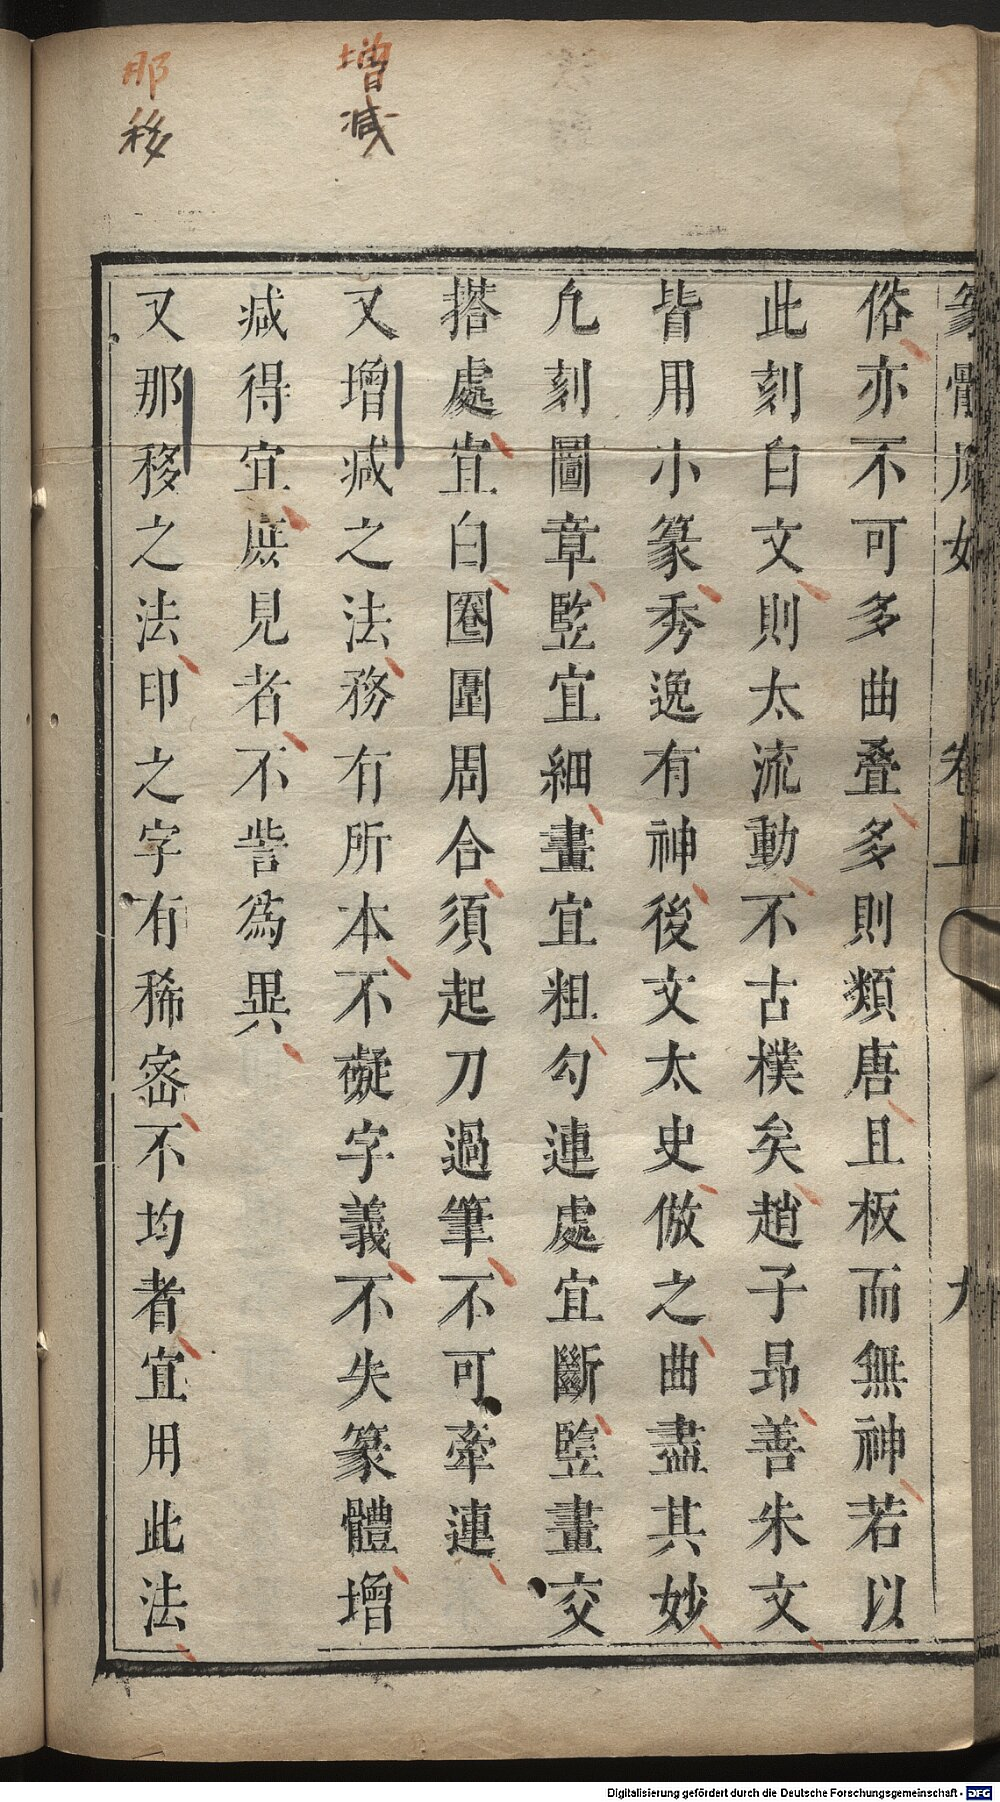 增減
那移
卷上
俗亦不可多曲叠多則類唐且板而無神若以
此刻白文則太流動不古樸矣趙子昂善朱文
皆用小篆秀逸有神後文太史倣之曲盡其妙
凢刻圖章竪宜細畫宜粗勾連處宜斷竪畫交
搭處宜白圈圍周合須起刀過筆不可牽連
又增减之法務有所本不礙字義不失篆體增
减得宜庶見者不訾為異
又那移之法印之字有稀宻不均者宜用此法
Digitalisierung gefördert durch die Deutsche Forschungsgemeinschaft - DFG